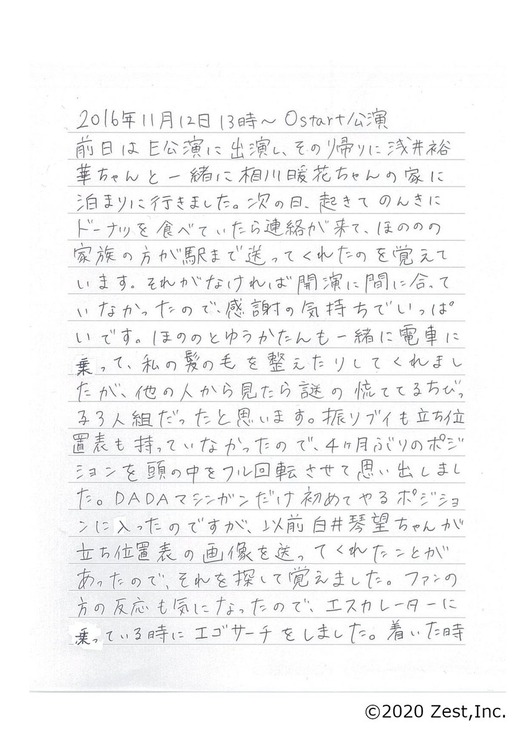 2016年11月12日13時～Ostart公演
前日はE公演に出演し、その帰りに浅井裕
華ちゃんと一緒に相川暖花ちゃんの家に
泊まりに行きました。次の日、起きてのんきに
ドーナツを食べていたら連絡が来て、ほののの
家族の方が駅まで送ってくれたのを覚えて
います。それがなければ開演に間に合って
いなかったので、感謝の気持ちでいっぱ
いです。ほののとゆうかたんも一緒に電車に
乗って、私の髪の毛を整えたりしてくれまし
たが、他の人から見たら謎の慌ててるちびっ
子3人組だったと思います。振りブイも立ち位
置表も持っていなかったので、4ヶ月ぶりのポジ
ションを頭の中をフル回転させて思い出しまし
た。DADAマシンガンだけ初めてやるポジショ
ンに入ったのですが、以前白井琴望ちゃんが
立ち位置表の画像を送ってくれたことが
あったので、それを探して覚えました。ファンの
方の反応も気になったので、エスカレーターに
乗っている時にエゴサーチをしました。着いた時
©2020 Zest,Inc.